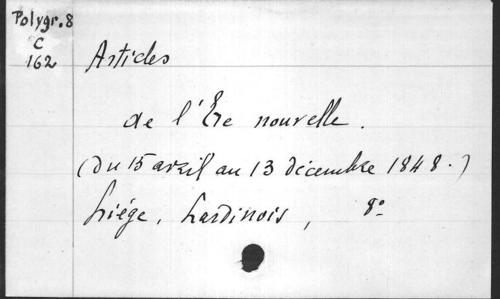 Polygr. 8
C
162
Articles
de l'Ère nouvelle.
(Du 15 avril au 13 décembre 1848.)
Liége, Lardinois, 8°